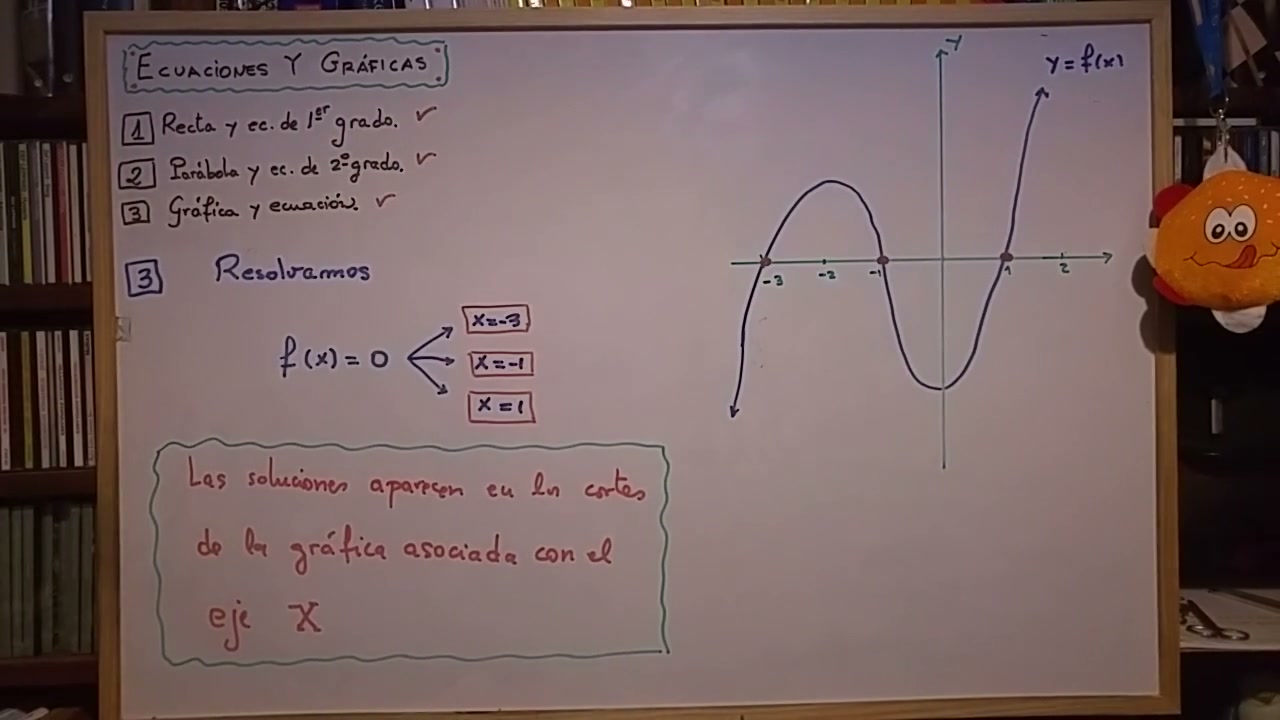 ECUACIONES Y GRÁFICAS
1 Recta y ec. de 1er grado. ✓
2 Parábola y ec. de 2º grado. ✓
3 Gráfica y ecuación. ✓
3 Resolvamos
f(x) = 0
x=-3
x=-1
x=1
Las soluciones aparecen en los cortes
de la gráfica asociada con el
eje X
Y
y = f(x)
-3 -2 -1 1 2